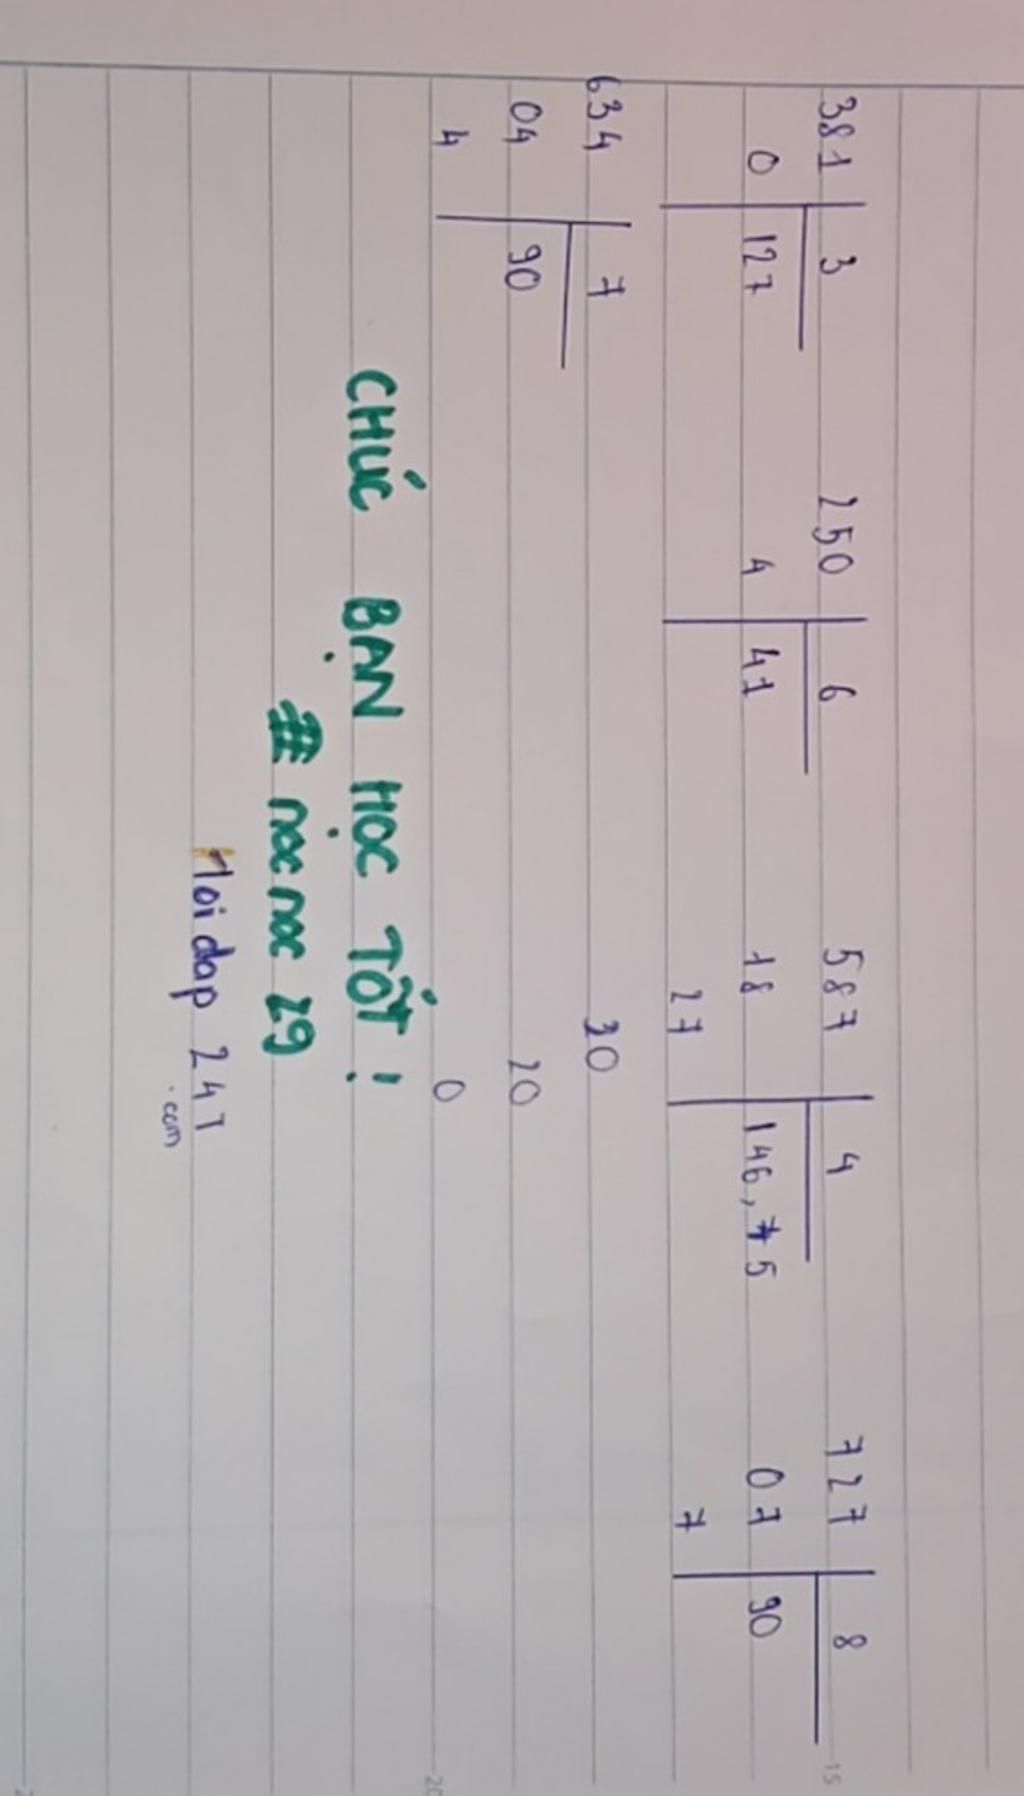 381 3 250 6 587 4 727 8
0 127 4 41 18 146,75 07 90
27 7
634 7 30
04 90 20
4 0
CHÚC BẠN HỌC TỐT !
nocnoc 29
Hoidap 247
.com
15
20